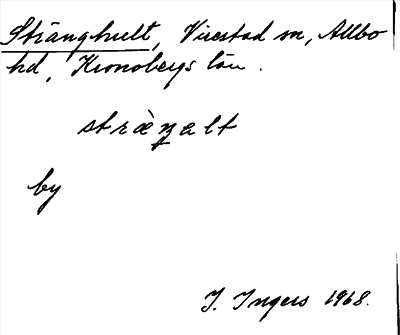 Stränghult, Virestad sn, Allbo
hd, Kronobergs län.
by
I. Ingers 1968.